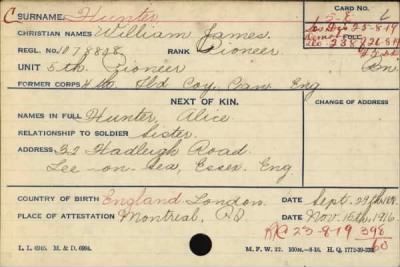 C SURNAME. Hunter CARD NO. L
CHRISTIAN NAMES William James.
REGL. NO. 1078828 RANK Pioneer FOLL.
UNIT 5th. Pioneer
FORMER CORPS 4th Fld Coy, Can Eng
NEXT OF KIN. CHANGE OF ADDRESS
NAMES IN FULL Hunter, Alice
RELATIONSHIP TO SOLDIER Sister.
ADDRESS 32 Hadleigh Road
Lee-on-Sea, Essex. Eng
COUNTRY OF BIRTH England London DATE Sept. 29th
PLACE OF ATTESTATION Montreal, P.Q DATE Nov. 15th, 1916.
R/C 23-8-19 398
L. L. 6945. M. & D. 6994. M. F. W. 22.